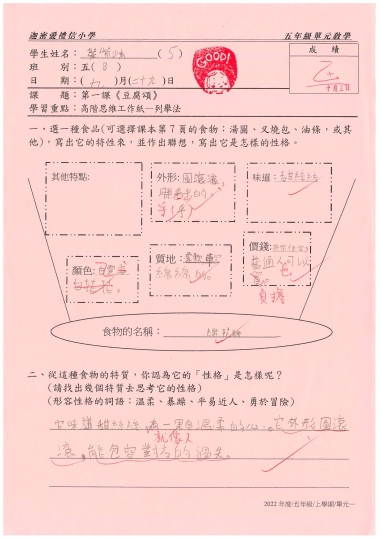 迦密愛禮信小學 五年級單元教學
學生姓名： (5) 成 績
班 別：五(B) GOOD!
日 期：(九)月(二十九)日
課 題：第一課《豆腐頌》
學習重點：高階思維工作紙—列舉法
一、選一種食品(可選擇課本第7頁的食物：湯圓、叉燒包、油條，或其
他)，寫出它的特性來，並作出聯想，寫出它是怎樣的性格。
其他特點： 外形：圓滾滾， 味道：甜絲絲
顏色： 質地： 價錢：
綿綿的。 普通人可以
負擔
食物的名稱：
二、從這種食物的特質，你認為它的「性格」是怎樣呢？
(請找出幾個特質去思考它的性格)
(形容性格的詞語：溫柔、暴躁、平易近人、勇於冒險)
它味道甜絲絲，有一果自溫柔的心。它外形圓滾
就像人
滾，能包容對方的過失。
2022年度/五年級/上學期/單元一